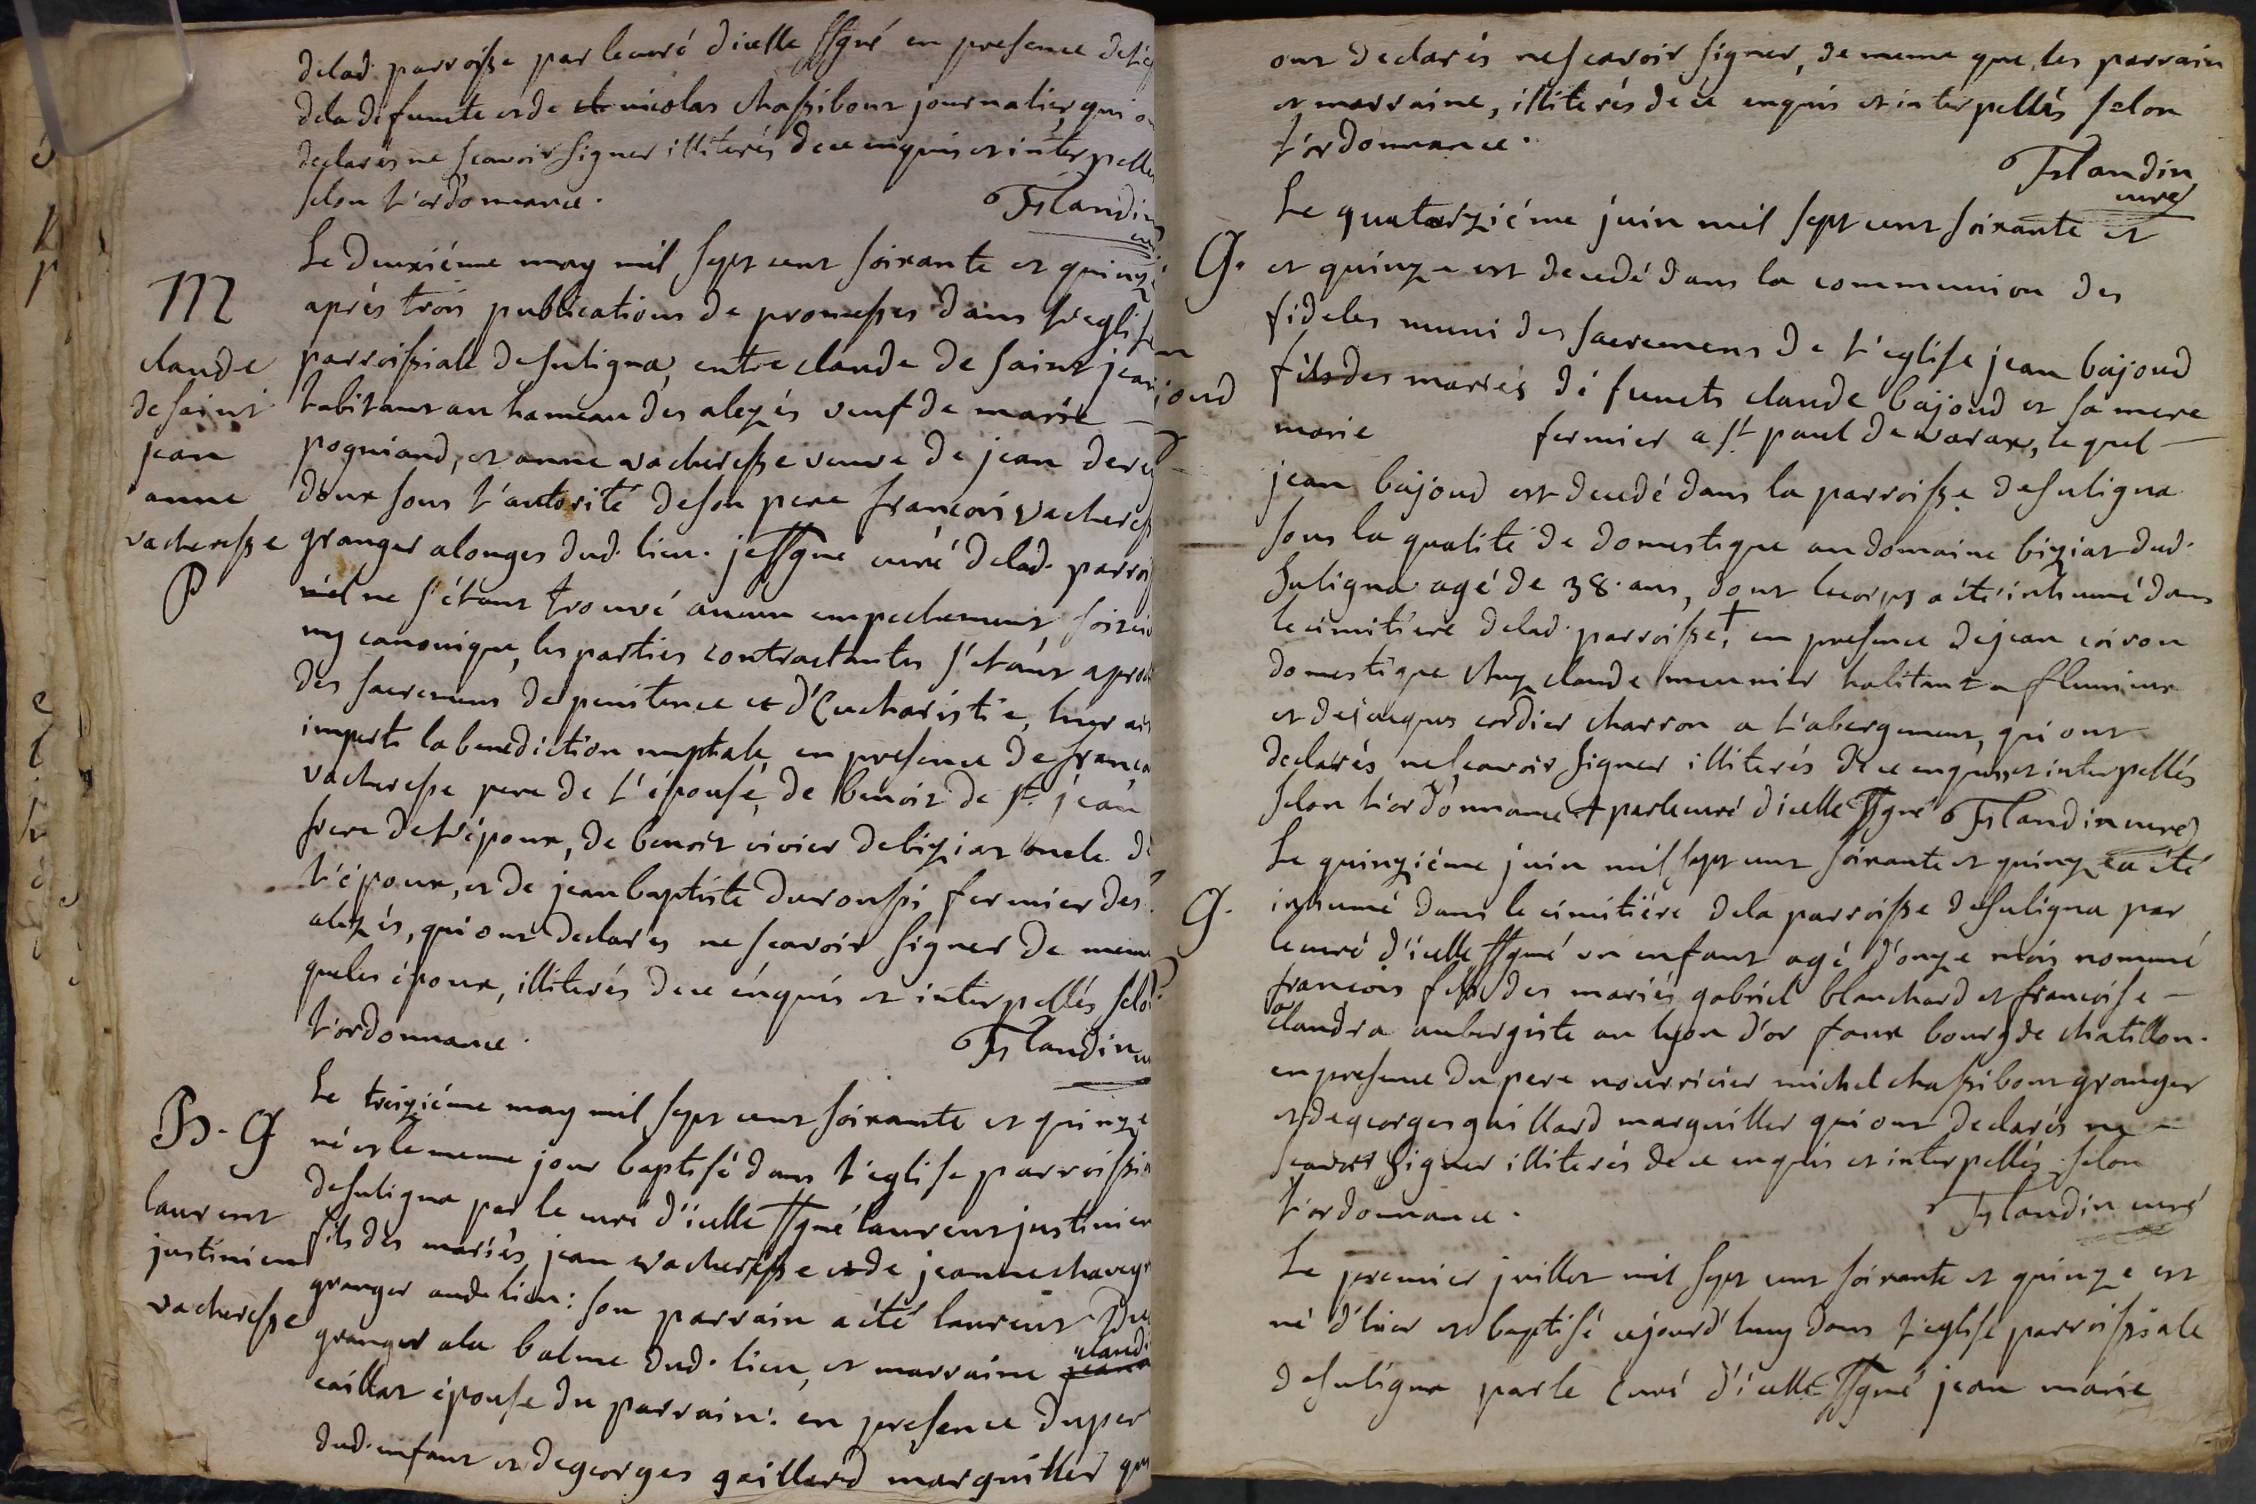 delad. parroisse par le curé dicelle ssgné en presence de
dela defuncte et de nicolas chassibout journalier, qui
declarés ne scavoir signer illiterés de ce enquis et interpellés
selon l'ordonnance.
Flandin
M
claude
de saint
jean
anne
vacheresse
P
Le deuxiéme may mil sept cent soixante et quinz
aprés trois publications de promesses dans l'eglise
parroissiale de suligna, entre claude de saint jean
habitant au hameau des alezés veuf de marie
pogniand, et anne vacheresse veuve de jean
doux sous l'autorité de son pere francois vacheress
granger a longes dud. lieu. je ssgné curé delad. parroi
ne s'étant trouvé aucun empechement, soit ci
ny canonique, les parties contractantes s'étant aproch
des sacremens de penitence et d'Eucharistie, leur ai
imparti la benediction nuptiale, en presence de franco
vacheresse pere de l'épouse, de benoit de st. jean
frere de l'époux, de benoit vivier de biziat oncle de
l'époux, et de jean baptiste duroussi fermier des
alezés, qui ont declarés ne scavoir signer de meme
que les époux, illiterés de ce enquis et interpellés selon
l'ordonnance.
Flandin
B. G
laurent
justinien
vacheresse
Le treiziéme may mil sept cent soixante et quinze
né et le meme jour baptisé dans l'eglise parroissia
de suligna par le curé d'icelle ssgné laurent justinien
fils des mariés jean vacheresse et de jeanne
granger aude lieu: son parrain a été laurent
granger ala balme dud. lieu, et marraine claud
caillat épouse du parrain: en presence du per
dud. enfant et de georges gaillard marguiller qu
ont declarés ne scavoir signer, de meme que les parrain
et marraine, illiterés de ce enquis et interpellés selon
l'ordonnance.
Flandin
curé
G.
Le quatorziéme juin mil sept cent soixante et
et quinze est decedé dans la communion des
fideles muni des sacremens de l'eglise jean bajoud
fils des mariés défuncts claude bajoud et sa mere
marie fermier a st paul de varax, le quel
jean bajoud est decedé dans la parroisse de suligna
sous la qualité de domestique au domaine biziat dud.
suligna agé de 38. ans, dont le corps a été inhumé dans
le cimitiere delad. parroisse + en presence de jean coiron
domestique chez claude meunier habitant a fluvieux
et de jacques cordier charron a l'abergement, qui ont
declarés ne scavoir signer illiterés de ce enquis et interpellés
selon l'ordonnance + par le curé dicelle ssgné Flandin curé
G.
Le quinziéme juin mil sept cent soixante et quinze a été
inhumé dans le cimitiére dela parroisse de suligna par
le curé d'icelle ssgné un enfant agé d'onze mois nommé
francois fils des mariés gabriel blanchard et francoise
clandra aubergiste au lyon d'or faux bourg de chatillon.
en presence du pere nourricier michel chassibout granger
et de georges guillard marguiller qui ont declarés ne
scavoir signer illiterés de ce enquis et interpellés selon
l'ordonnance.
Flandin curé
Le premier juillet mil sept cent soixante et quinze est
né d'hier et baptisé cejourd'huy dans l'eglise parroissiale
de suligna par le curé d'icelle ssgné jean marie